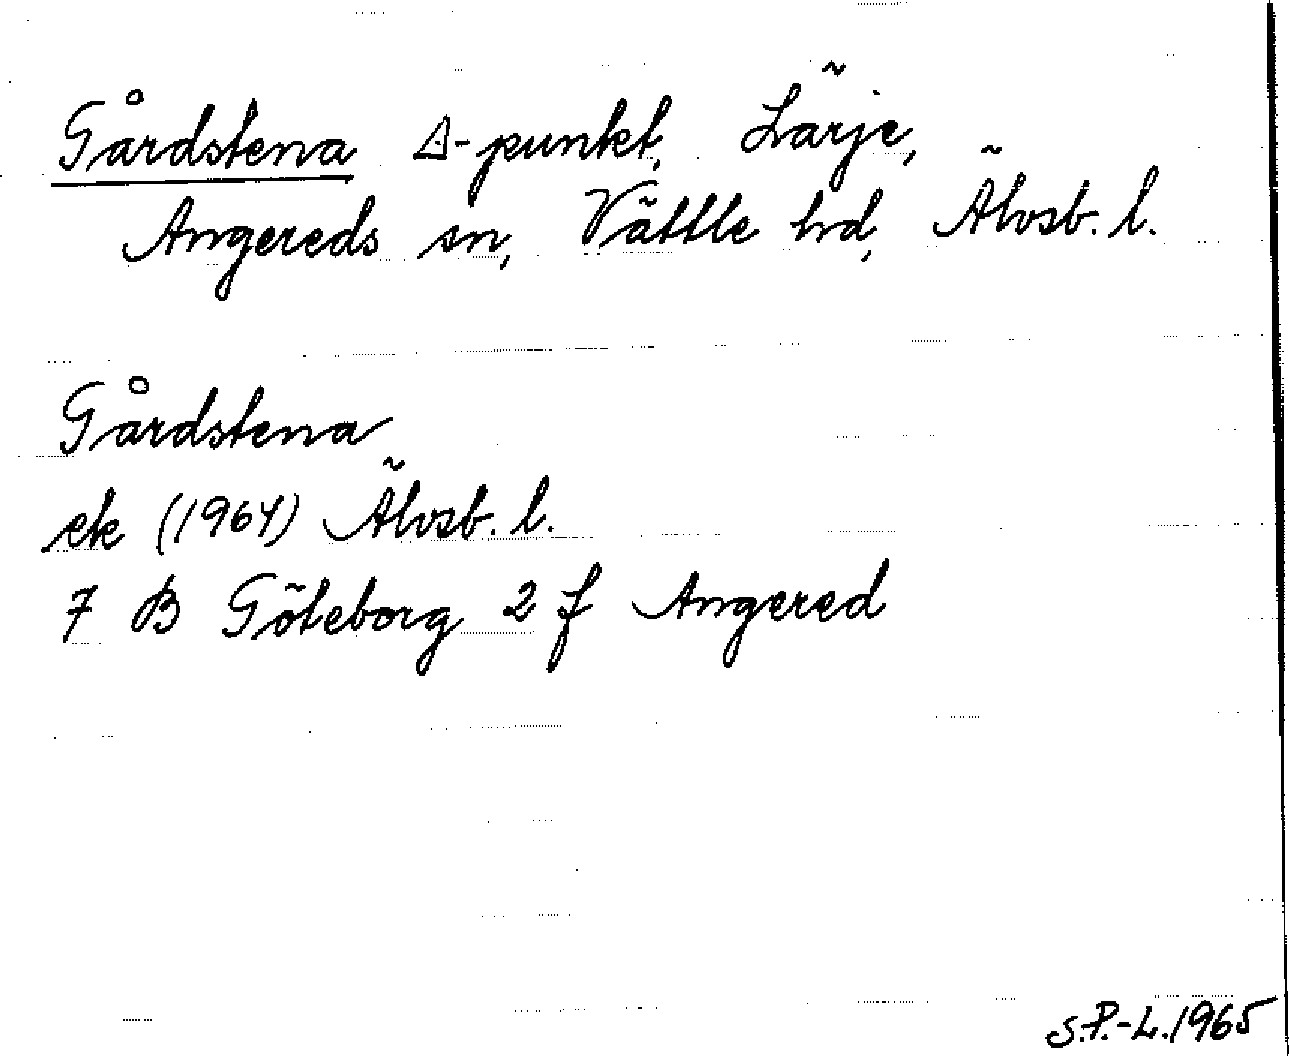 Gårdstena △-punkt, Lärje,
Angereds sn, Vättle hd, Älvsb. l.
Gårdstena
ek (1964) Älvsb. l.
7 B Göteborg 2 f Angered
S.P.-L. 1965